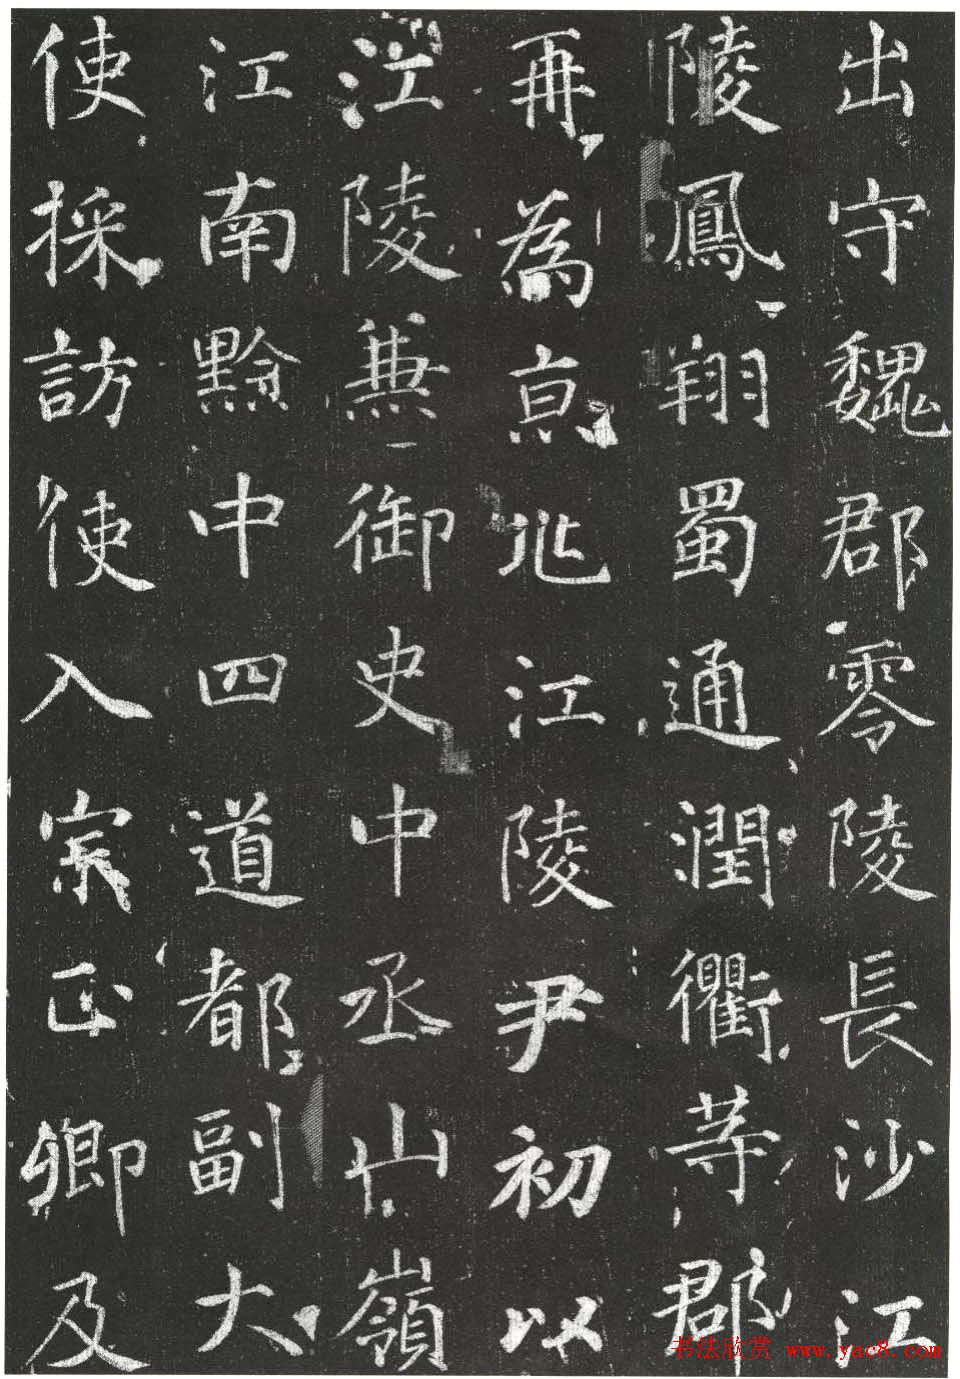 出守魏郡零陵長沙江
陵鳳翔蜀通潤衢等郡
再為亰兆江陵尹初以
江陵兼御史中丞山嶺
江南黔中四道都副大
使採訪使入宗正卿及
书法欣赏 www.yac8.com